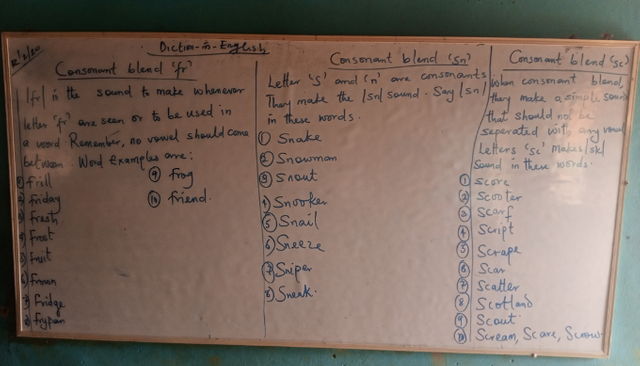 Diction-in-English
Consonant blend 'fr'
/fr/ is the sound to make whenever
letter 'fr' are seen or to be used in
a word. Remember, no vowel should come
between. Word Examples are:
① frill
② friday
③ fresh
④ frost
⑤ fruit
⑥ frown
⑦ fridge
⑧ frypan
⑨ frog
⑩ friend.
Consonant blend 'sn'
Letter 'S' and 'n' are consonants
They make the /sn/ sound. Say /sn/
in these words.
① Snake
② Snowman
③ Snout
④ Snooker
⑤ Snail
⑥ Sneeze
⑦ Sniper
⑧ Sneak.
Consonant blend 'sc'
When consonant blend,
they make a simple sound
that should not be
seperated with any vowel
Letters 'sc' makes /sk/
sound in these words.
① Score
② Scooter
③ Scarf
④ Script
⑤ Scrape
⑥ Scar
⑦ Scatter
⑧ Scotland
⑨ Scout
⑩ Scream, Scare,